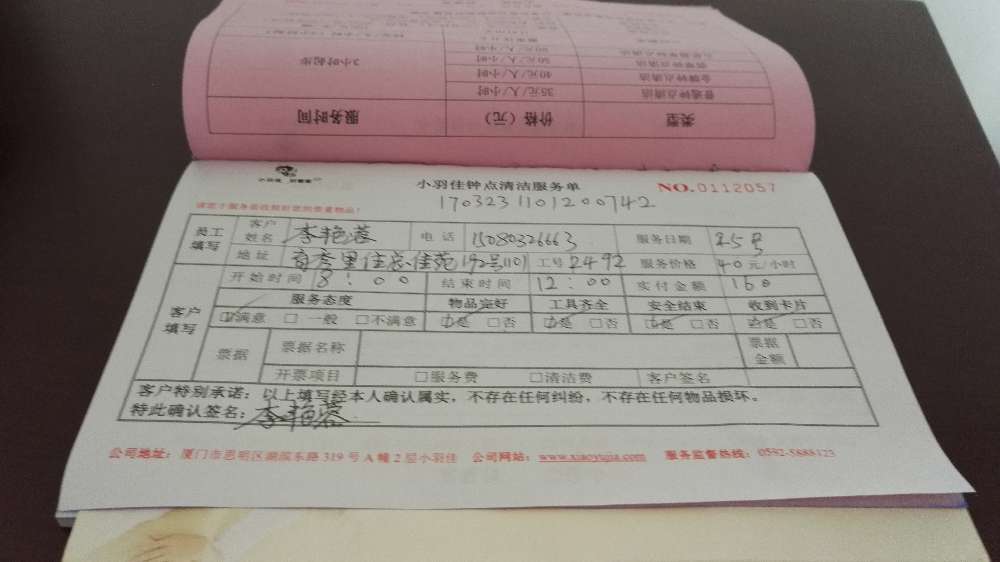 类型 价格（元） 服务时间
普通钟点清洁 35元/人/小时 3小时起步
金牌钟点清洁 40元/人/小时
小羽佳钟点清洁服务单 NO.0112057
1703231101200742
员工填写 客户姓名 李艳蓉 电话 15080326663 服务日期 25号
地址 192号1101 工号 2492 服务价格 40元/小时
客户填写 开始时间 8:00 结束时间 12:00 实付金额 160
服务态度 物品完好 工具齐全 安全结束 收到卡片
☑满意 □一般 □不满意 ☑是 □否 ☑是 □否 ☑是 □否 ☑是 □否
票据 票据名称 票据金额
开票项目 □服务费 □清洁费 客户签名
客户特别承诺：以上填写经本人确认属实，不存在任何纠纷，不存在任何物品损坏。
特此确认签名：李艳蓉
公司地址：厦门市思明区湖滨东路319号A幢2层小羽佳 公司网站：www.xiaoyujia.com 服务监督热线：0592-5888123